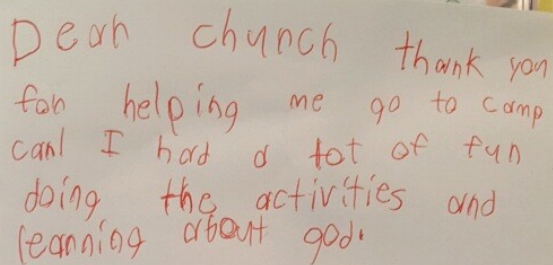 Dear church thank you
for helping me go to camp
carl I had a lot of fun
doing the activities and
learning about god.